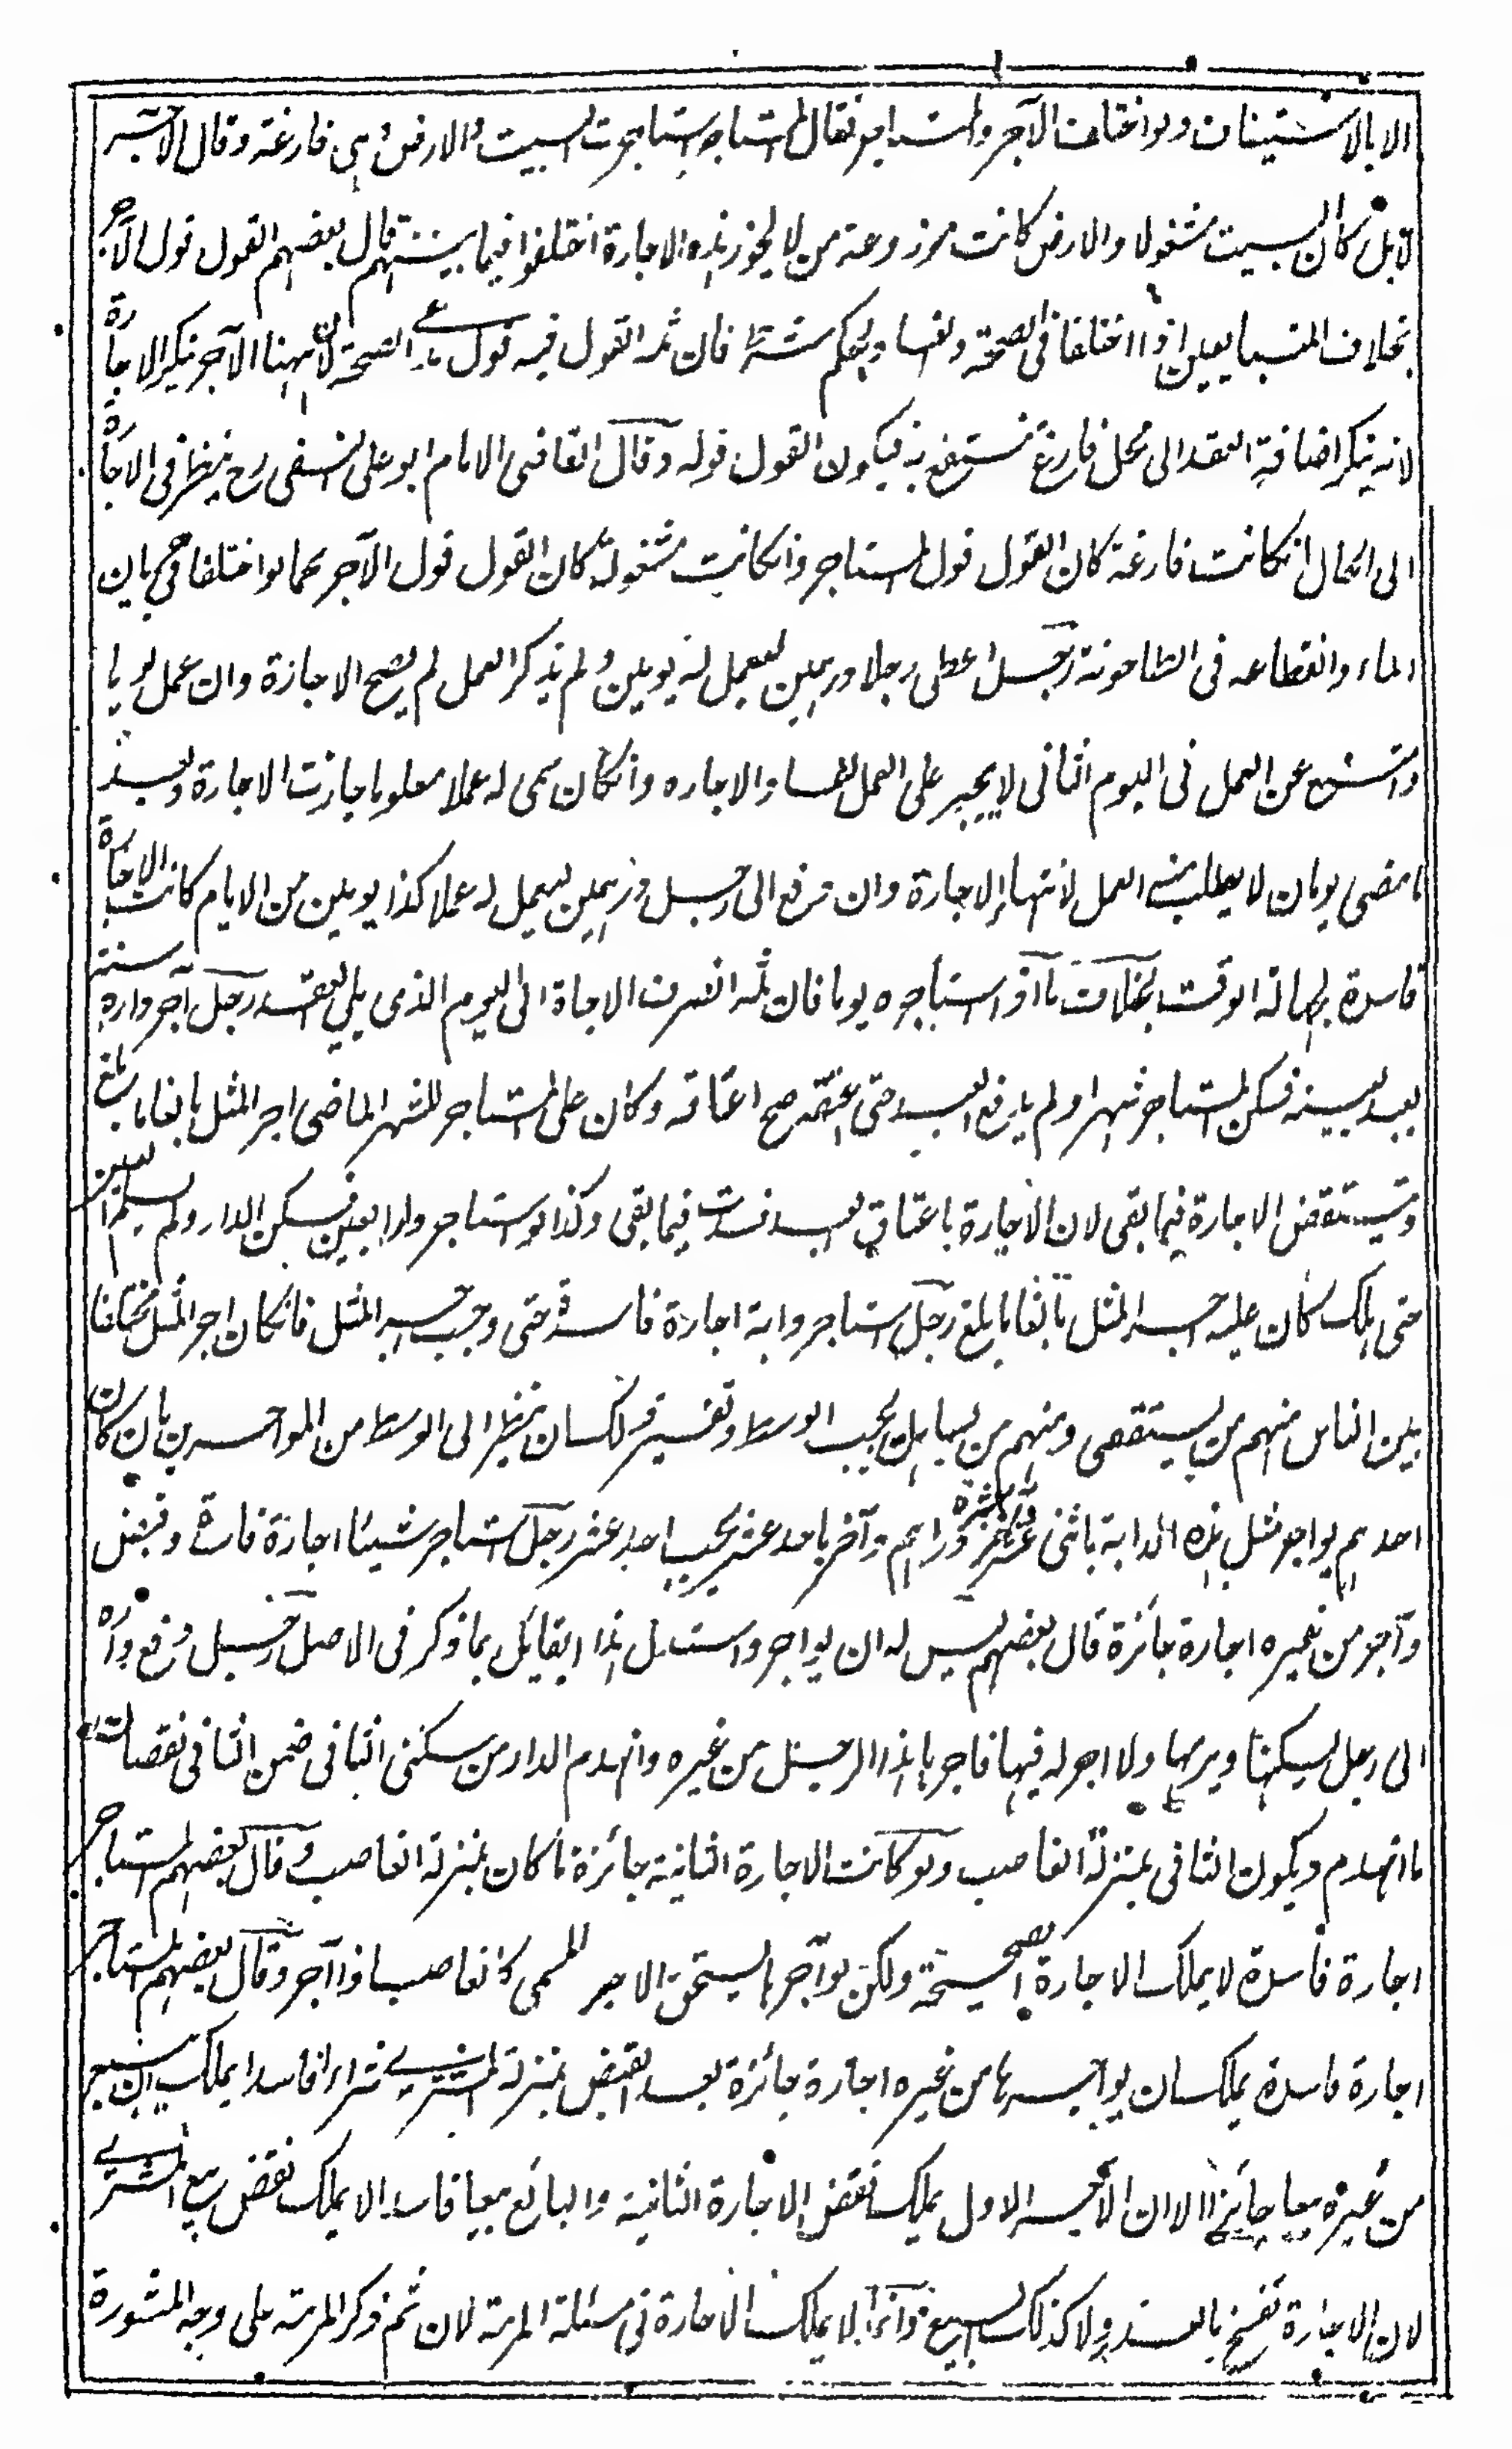 الا بالاستيناف ولو اختلف الآجر والمستاجر فقال المستاجر استاجرت البيت والارض وهى فارغة وقال الآجر
لا بل كان البيت مشغولا والارض كانت مزروعة من لا يجوز هذه الاجارة اختلفوا فيما بينهم قال بعضهم القول قول الآجر
بخلاف المتبايعين اذا اختلفا فى الصحة والفساد بحكم شرط فان ثمه القول فيه قول مدعى الصحة لان ههنا الآجر ينكر الاجارة
لانه ينكر اضافة العقد الى محل فارغ منتفع به فيكون القول قوله وقال القاضى الامام ابو على النسفى رح ينظر فى الاجارة
الى الحال ان كانت فارغة كان القول قول المستاجر وان كانت مشغولة كان القول قول الآجر كما لو اختلفا فى جريان
الماء وانقطاعه فى الطاحونة رجل اعطى رجلا درهمين ليعمل له يومين ولم يذكر العمل لم يصح الاجازة وان عمل يوما
وامتنع عن العمل فى اليوم الثانى لا يجبر على العمل لفساد الاجاره وان كان سمى له عملا معلوما جازت الاجارة وبعد
ما مضى يومان لا يطلب منه العمل لانتهاء الاجارة وان دفع الى رجل درهمين ليعمل له عملا كذا يومين من الايام كانت الاجارة
فاسدة لجهالة الوقت بخلاف ما اذا استاجره يوما فان ثمه انصرف الاجاة الى اليوم الذى يلى العقد رجل آجر داره سنة
بعبد بعينه فسكن المستاجر شهرا ولم يدفع العبد حتى اعتقه صح اعتاقه وكان على المستاجر للشهر الماضى اجر المثل بالغا ما بلغ
وتنتقض الاجارة فيما بقى لان الاجارة باعتاق العبد فسدت فيما بقى وكذا لو استاجر دارا بعين فسكن الدار ولم يسلم العين
حتى هلك كان عليه اجر المثل بالغا ما بلغ رجل استاجر دابة اجارة فاسدة حتى وجب اجر المثل فان كان اجر المثل مختلفا
بين الناس منهم من يستقصى ومنهم من يساهل يجب الوسط وتفسير ذلك ان ينظر الى الوسط من المواجرين بان كان
احدهم يواجر مثل هذه الدابة باثنى عشر والآخر بعشرة دراهم وآخر باحد عشر يجب احد عشر رجل استاجر شيئا اجازة فاسدة وقبض
وآجر من غيره اجارة جائزة قال بعضهم ليس له ان يواجر واستدل هذا القائل بما ذكر فى الاصل رجل دفع داره
الى رجل ليسكنها ويرمها ولا اجر له فيها فاجرها هذا الرجل من غيره وانهدم الدار من سكنى الثانى ضمن الثانى نقصان
ما انهدم ويكون الثانى بمنزلة الغاصب ولو كانت الاجارة الثانية جائزة ما كان بمنزلة الغاصب وقال بعضهم المستاجر
اجارة فاسدة لا يملك الاجارة الصحيحة ولكن لو آجرها يستحق الاجر المسمى كالغاصب اذا آجر وقال بعضهم المستاجر
اجارة فاسدة يملك ان يواجرها من غيره اجارة جائزة بعد القبض بمنزلة المشترى شراء فاسدا يملك ان يبيع
من غيره بيعا جائزا الا ان الآجر الاول يملك نقض الاجارة الثانية والبائع بيعا فاسدا لا يملك نقض بيع المشترى
لان الاجارة تفسخ بالعذر ولا كذلك البيع وانما لا يملك الاجارة فى مسئلة المرمة لان ثم ذكر المرمة على وجه المشورة